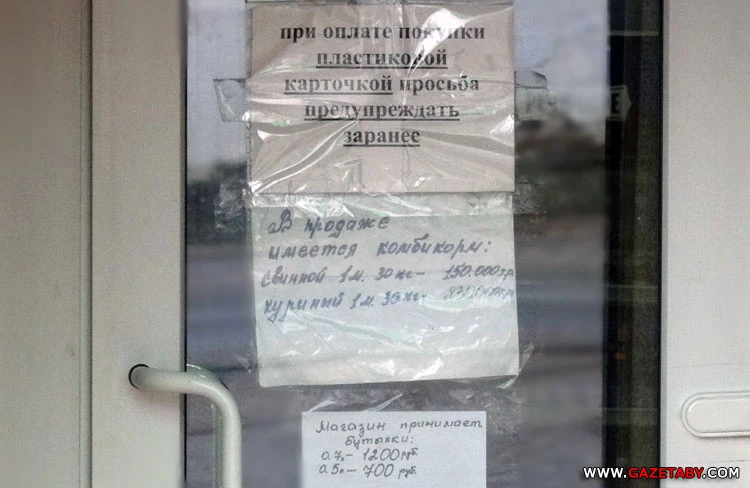 при оплате покупки
пластиковой
карточкой просьба
предупреждать
заранее
В продаже
имеется комбикорм:
свиной 1 м. 30 кг - 150.000
куриный 1 м. 30 кг -
Магазин принимает
бутылки:
0.7л - 1200 руб.
0.5л - 700 руб.
WWW.GAZETABY.COM